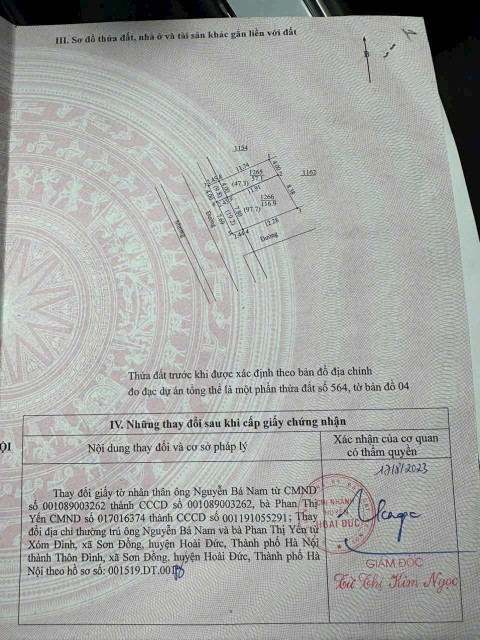 III. Sơ đồ thửa đất, nhà ở và tài sản khác gắn liền với đất
B
3154
11.74
4.00
1265
57.1
(47.3)
(9.8)
4.00
11.91
3162
8.38
1266
116.9
(97.7)
(19.2)
7.69
12.28
Mương
Đường
Đường
Thửa đất trước khi được xác định theo bản đồ địa chính
đo đạc dự án tổng thể là một phần thửa đất số 564, tờ bản đồ 04
IV. Những thay đổi sau khi cấp giấy chứng nhận
Nội dung thay đổi và cơ sở pháp lý
Xác nhận của cơ quan
có thẩm quyền
ỘI
17/8/2023
Thay đổi giấy tờ nhân thân ông Nguyễn Bá Nam từ CMND
số 001089003262 thành CCCD số 001089003262, bà Phan Thị
Yến CMND số 017016374 thành CCCD số 001191055291; Thay
đổi địa chỉ thường trú ông Nguyễn Bá Nam và bà Phan Thị Yến từ
Xóm Đình, xã Sơn Đồng, huyện Hoài Đức, Thành phố Hà Nội
thành Thôn Đình, xã Sơn Đồng, huyện Hoài Đức, Thành phố Hà
Nội theo hồ sơ số: 001519.DT.001
CHI NHÁNH
HOÀI ĐỨC
GIÁM ĐỐC
Từ Thị Kim Ngọc